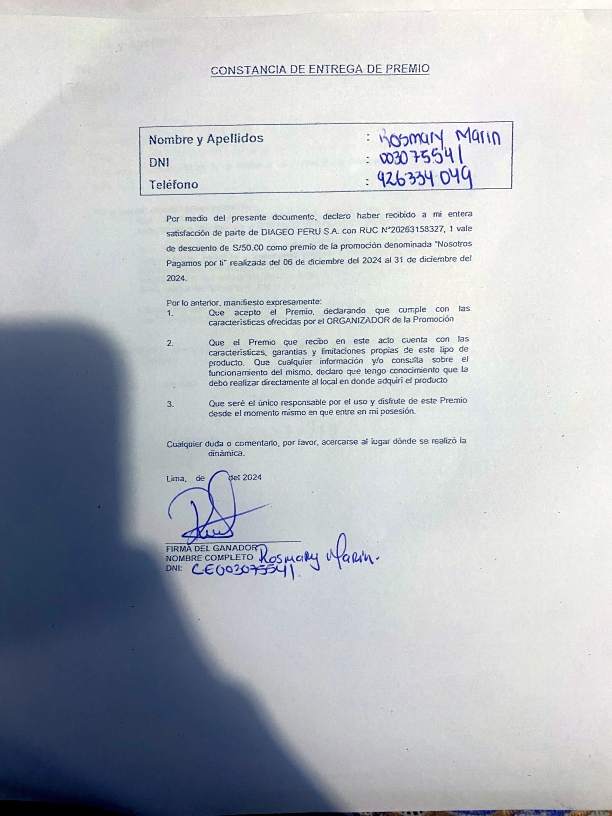 CONSTANCIA DE ENTREGA DE PREMIO
Nombre y Apellidos : Rosmary Marin
DNI : 003075541
Teléfono : 926334049
Por medio del presente documento, declaro haber recibido a mi entera
satisfacción de parte de DIAGEO PERU S.A. con RUC N°20263158327, 1 vale
de descuento de S/50.00 como premio de la promoción denominada "Nosotros
Pagamos por ti" realizada del 06 de diciembre del 2024 al 31 de diciembre del
2024.
Por lo anterior, manifiesto expresamente:
1. Que acepto el Premio, declarando que cumple con las
características ofrecidas por el ORGANIZADOR de la Promoción
2. Que el Premio que recibo en este acto cuenta con las
características, garantías y limitaciones propias de este tipo de
producto. Que cualquier información y/o consulta sobre el
funcionamiento del mismo, declaro que tengo conocimiento que la
debo realizar directamente al local en donde adquirí el producto
3. Que seré el único responsable por el uso y disfrute de este Premio
desde el momento mismo en que entre en mi posesión.
Cualquier duda o comentario, por favor, acercarse al lugar dónde se realizó la
dinámica.
Lima, de del 2024
FIRMA DEL GANADOR
NOMBRE COMPLETO Rosmary Marin.
DNI: CE003075541.